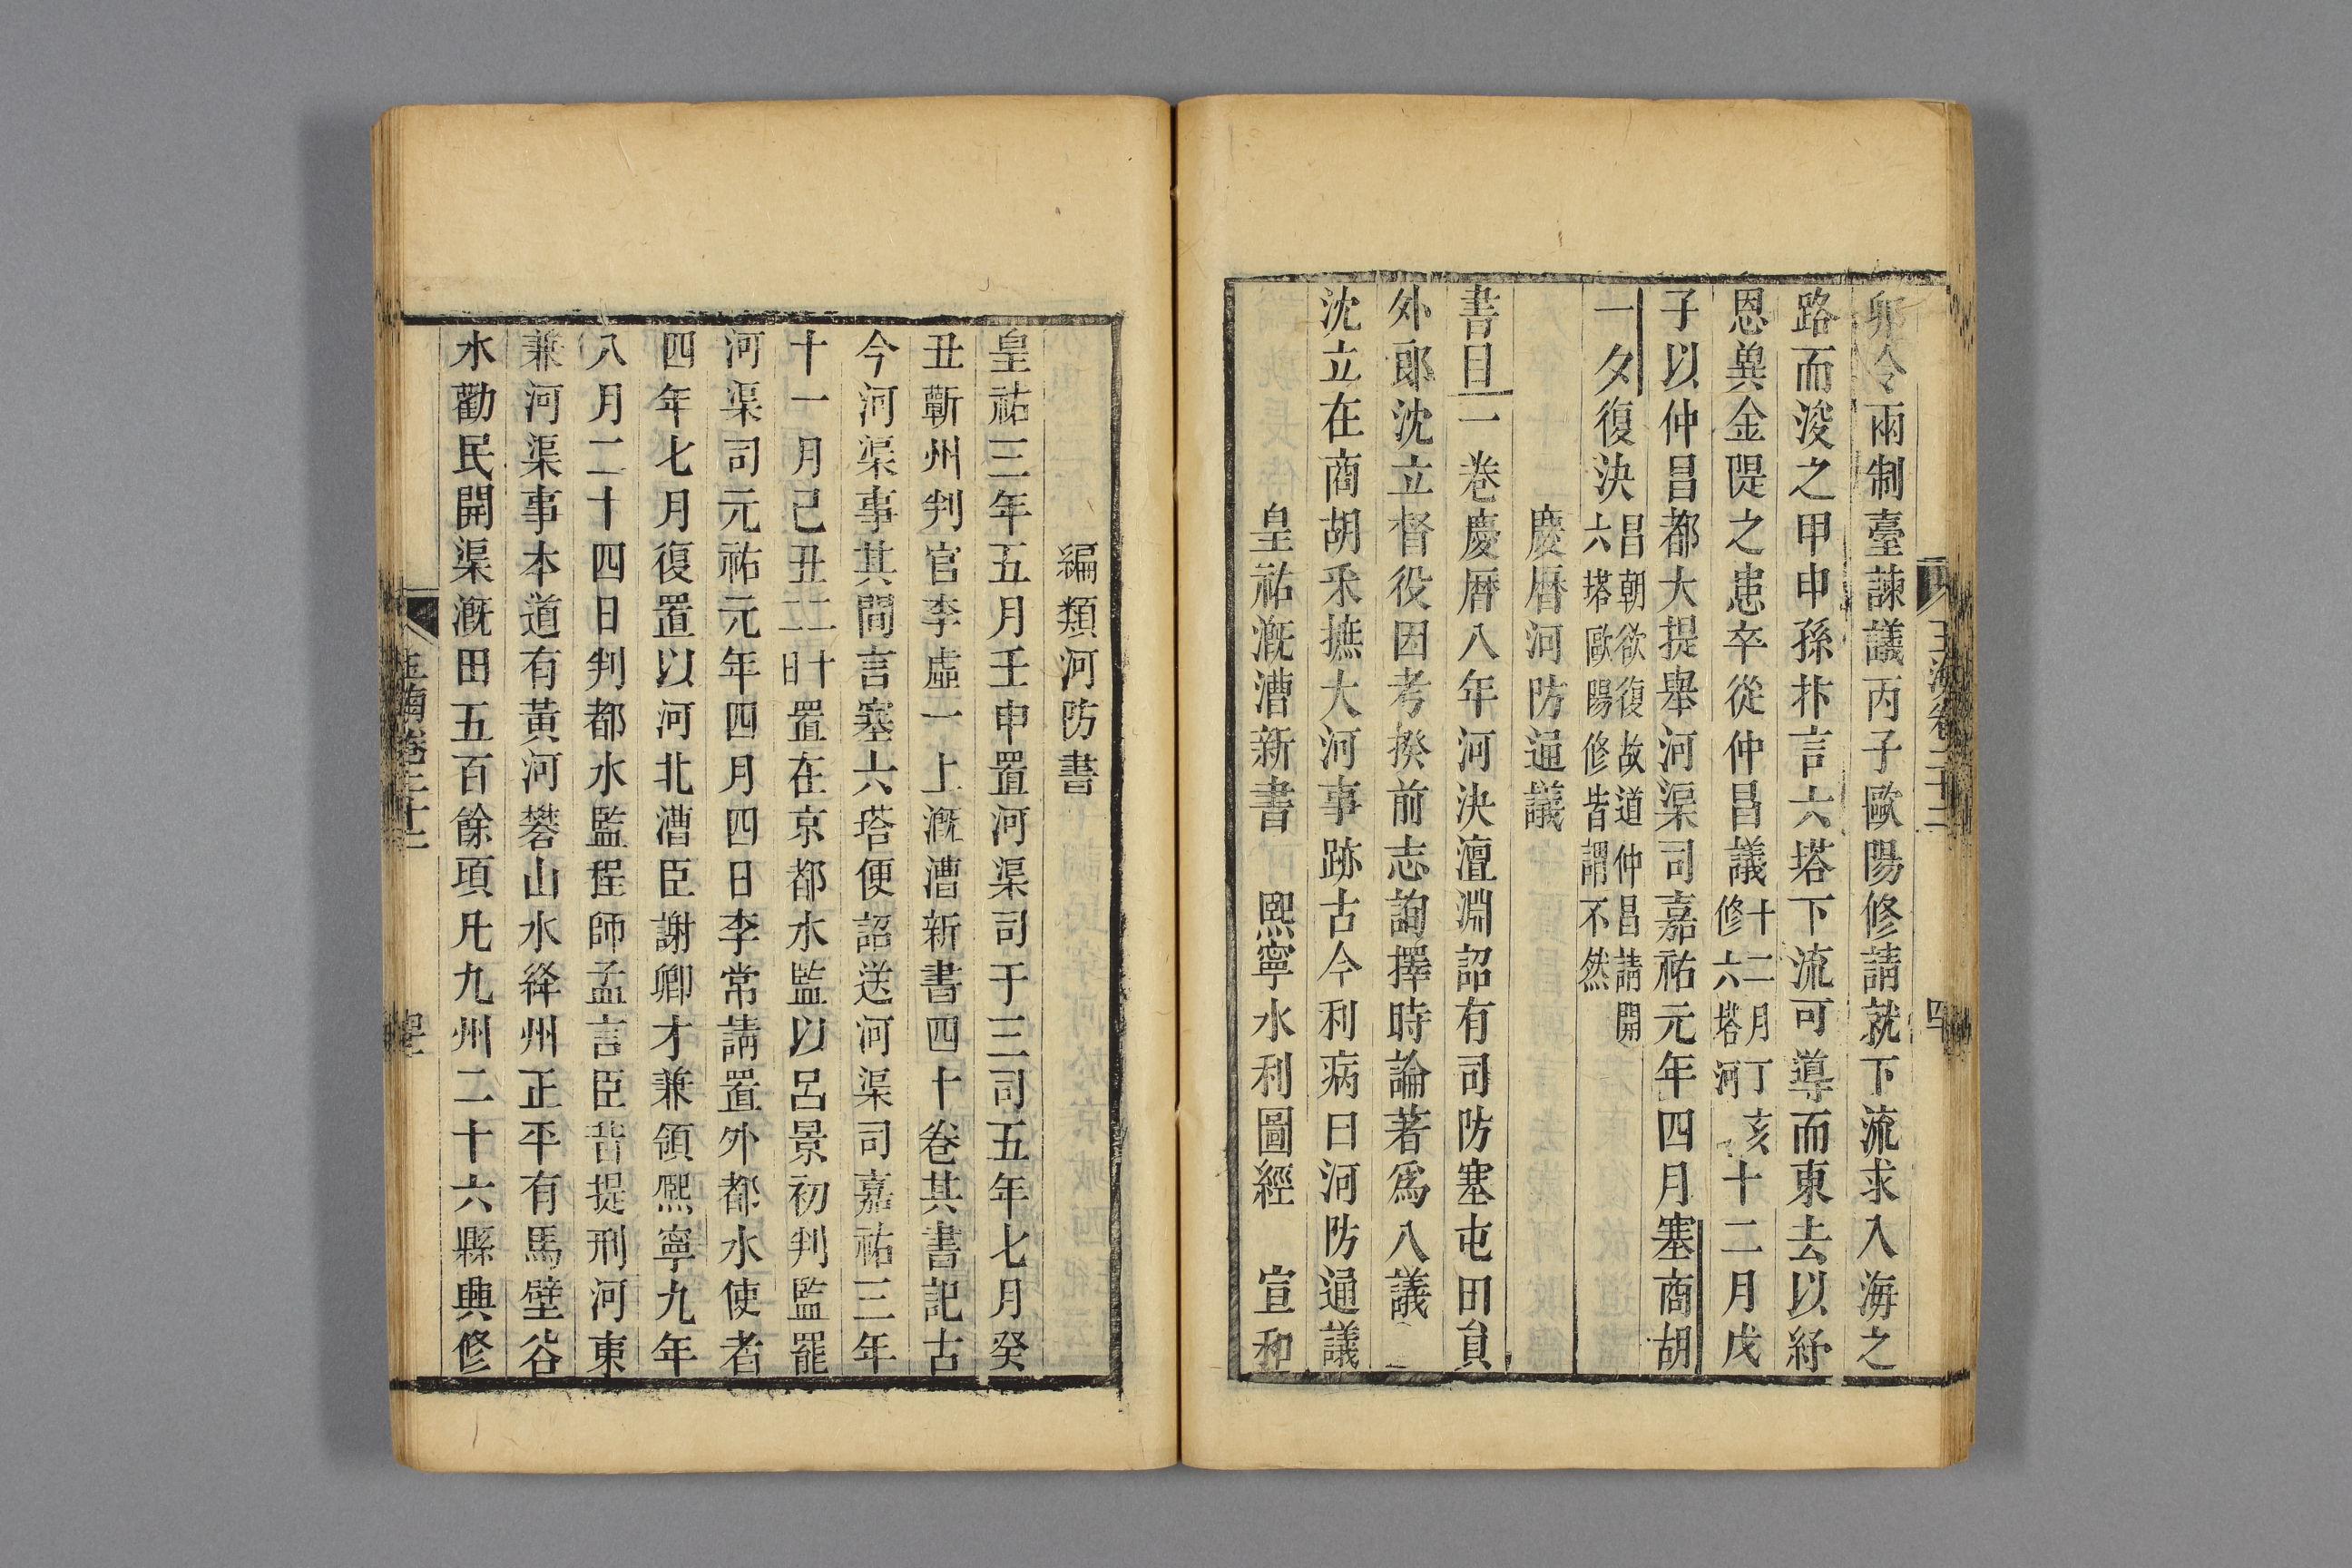 卯令兩制臺諫議丙子歐陽修請就下流求入海之
路而浚之甲申孫抃言六塔下流可導而東去以紓
恩兾金隄之患卒從仲昌議十二月丁亥修六塔河十二月戊
子以仲昌都大提舉河渠司嘉祐元年四月塞商胡
一夕復決昌朝欲復故道仲昌請開六塔歐陽修皆謂不然
慶曆河防通議
書目一卷慶曆八年河決澶淵詔有司防塞屯田員
外郎沈立督役因考揆前志詢擇時論著為八議
沈立在商胡采摭大河事跡古今利病曰河防通議
皇祐溉漕新書 熙寧水利圖經 宣和
編類河防書
皇祐三年五月壬申置河渠司于三司五年七月癸
丑蘄州判官李虛一上溉漕新書四十卷其書記古
今河渠事其間言塞六塔便詔送河渠司嘉祐三年
十一月己丑二十二日置在京都水監以呂景初判監罷
河渠司元祐元年四月四日李常請置外都水使者
四年七月復置以河北漕臣謝卿才兼領熙寧九年
八月二十四日判都水監程師孟言臣昔提刑河東
兼河渠事本道有黃河礬山水絳州正平有馬壁谷
水勸民開渠溉田五百餘項凡九州二十六縣興修